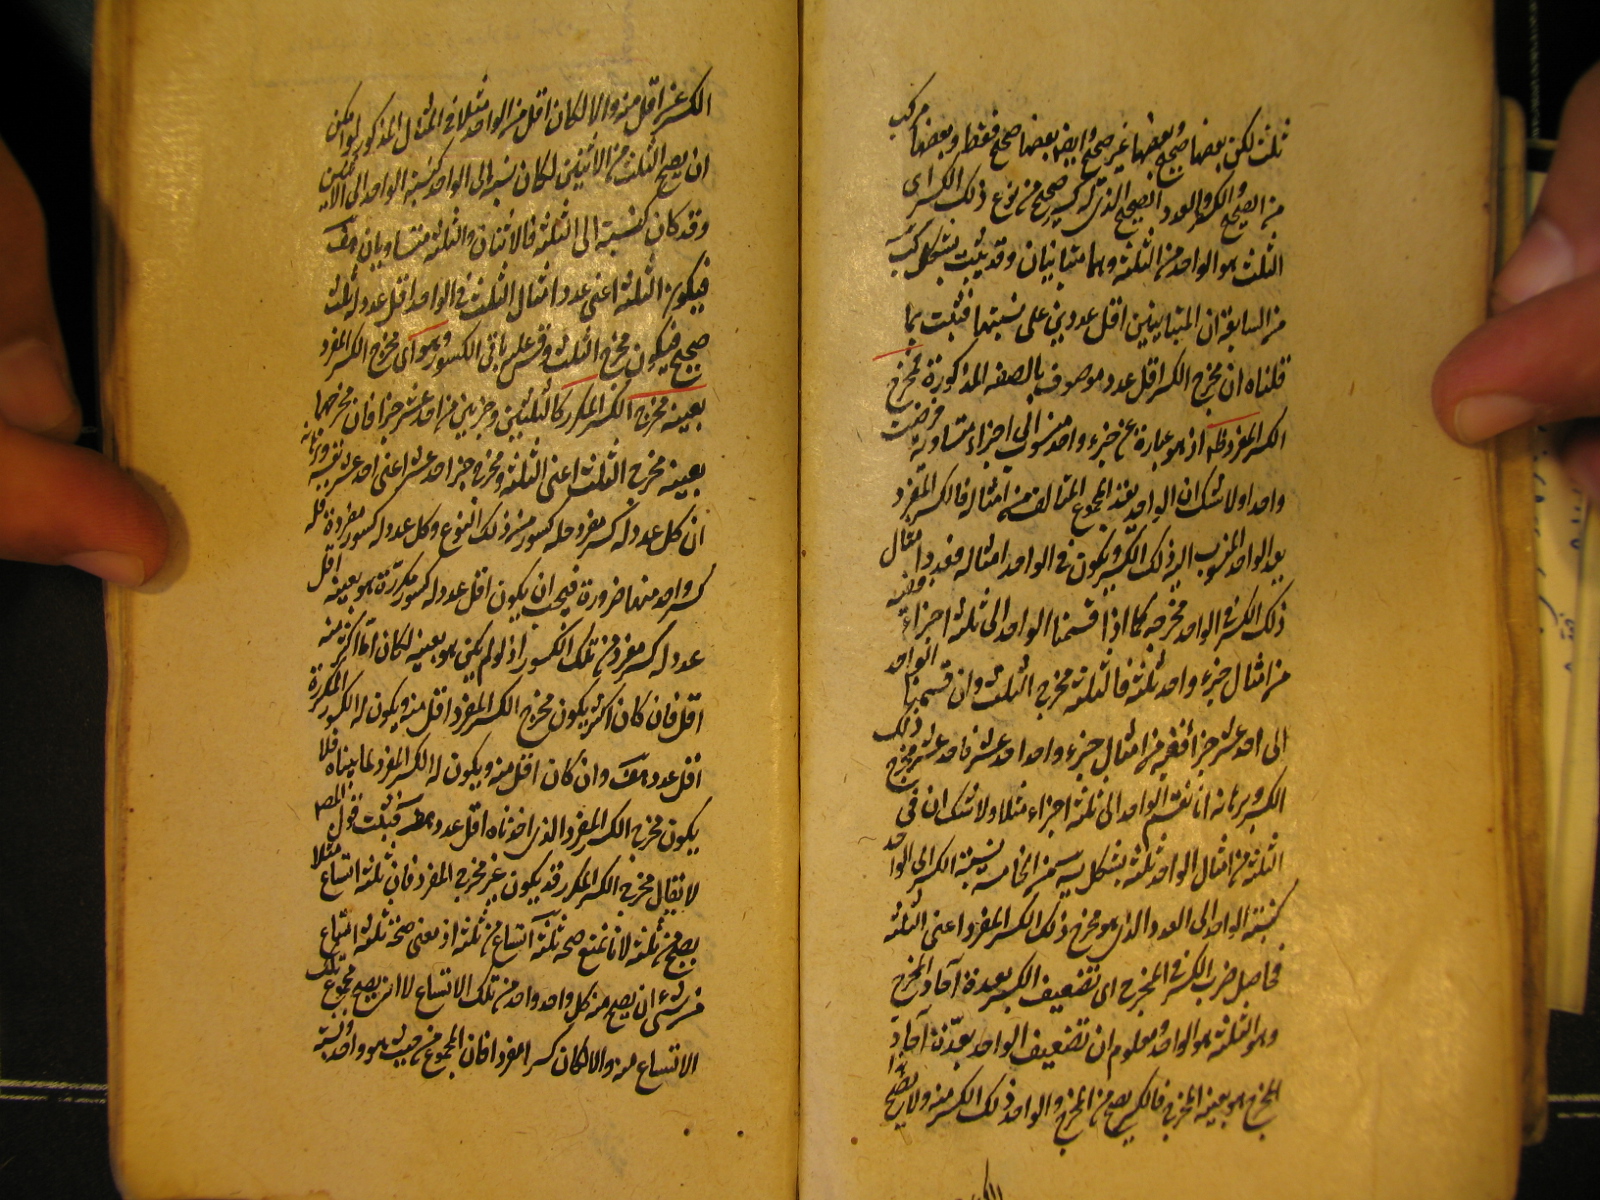 ثلث لكن بعضها صحيح وبعضها غير صحيح وايضا بعضها صحيح فقط وبعضها مركب
من الصحيح والكسر والعدد الصحيح الذى له كسر صحيح من نوع ذلك الكسر اى
الثلث هو الواحد من الثلثة وهما متباينان وقد ثبت بشكل
من السابعة ان المتباينين اقل عددين على نسبتهما فثبت بما
قلناه ان مخرج الكسر اقل عدد موصوف بالصفة المذكورة فمخرج
الكسر المفرد اذ هو عبارة عن جزء واحد منسوب الى اجزاء متساوية فرضت
واحدا ولا شك ان الواحد يعد المجموع المتالف من امثاله فالكسر المفرد
يعد الواحد المنسوب اليه ذلك الكسر فيكون فى الواحد امثاله فعدد امثال
ذلك الكسر فى الواحد مخرجه كما اذا قسمنا الواحد الى ثلثة اجزاء ففيه
من امثال جزء واحد ثلثة فالثلثة مخرج الثلث وان قسمنا الواحد
الى احد عشر جزأ ففيه من امثال جزء واحد احد عشر فاحد عشر مخرج ذلك
الكسر وبرهانه انا نقسم الواحد الى ثلثة اجزاء مثلا ولا شك ان فى
الثلثة من امثال الواحد ثلثة بشكل من الخامسة نسبة الكسر الى الواحد
كنسبة الواحد الى العدد الذى هو مخرج ذلك الكسر المفرد اعنى الثلثة
فحاصل ضرب الكسر فى المخرج اى تضعيف الكسر بعدة آحاد المخرج
وهو الثلثة هو الواحد ومعلوم ان تضعيف الواحد بعدة آحاد
المخرج هو بعينه المخرج فالكسر يصح من المخرج والواحد ذلك الكسر منه ولا يصح هذا
الكسر من اقل منه والا لكان اقل من الواحد مثلا فى المثال المذكور لو امكن
ان يصح الثلث من الاثنين لكان نسبته الى الواحد كنسبة الواحد الى الاثنين
وقد كان كنسبته الى الثلثة فالاثنان والثلثة متساويان هف
فيكون الثلثة اعنى عدد امثال الثلث فى الواحد اقل عدد له ثلث
صحيح فيكون مخرج الثلث وقس عليه باقى الكسور وهو اى مخرج الكسر المفرد
بعينه مخرج الكسر المكرر كالثلثين وجزئين من احد عشر جزأ فان مخرجهما
بعينه مخرج الثلث اعنى الثلثة ومخرج جزء احد عشر اعنى احد عشر نفسه وبرهانه
ان كل عدد له كسر مفرد فله كسور من ذلك النوع وكل عدد له كسور مفردة فله
كسر واحد منها ضرورة فيجب ان يكون اقل عدد له كسور مكررة هو بعينه اقل
عدد له كسر مفرد من تلك الكسور اذ لو لم يكن هو بعينه لكان اما اكثر منه
اقل فان كان اكثر يكون مخرج الكسر المفرد اقل منه ويكون له الكسور المكررة
اقل عدد هف وان كان اقل منه ويكون له الكسر المفرد لما بيناه فلا
يكون مخرج الكسر المفرد الذى اخذناه اقل عدد هف فثبت قول المص
لا يقال مخرج الكسر المكرر قد يكون غير مخرج المفرد فان ثلثة اتساع مثلا
يصح من ثلثة لانا نمنع صحة ثلثة اتساع من ثلثة اذ معنى صحة ثلثة اتساع
من شئ ان يصح منه كل واحد واحد من تلك الاتساع لا ان يصح مجموع تلك
الاتساع منه والا لكان كسرا مفردا فان المجموع من حيث هو واحد